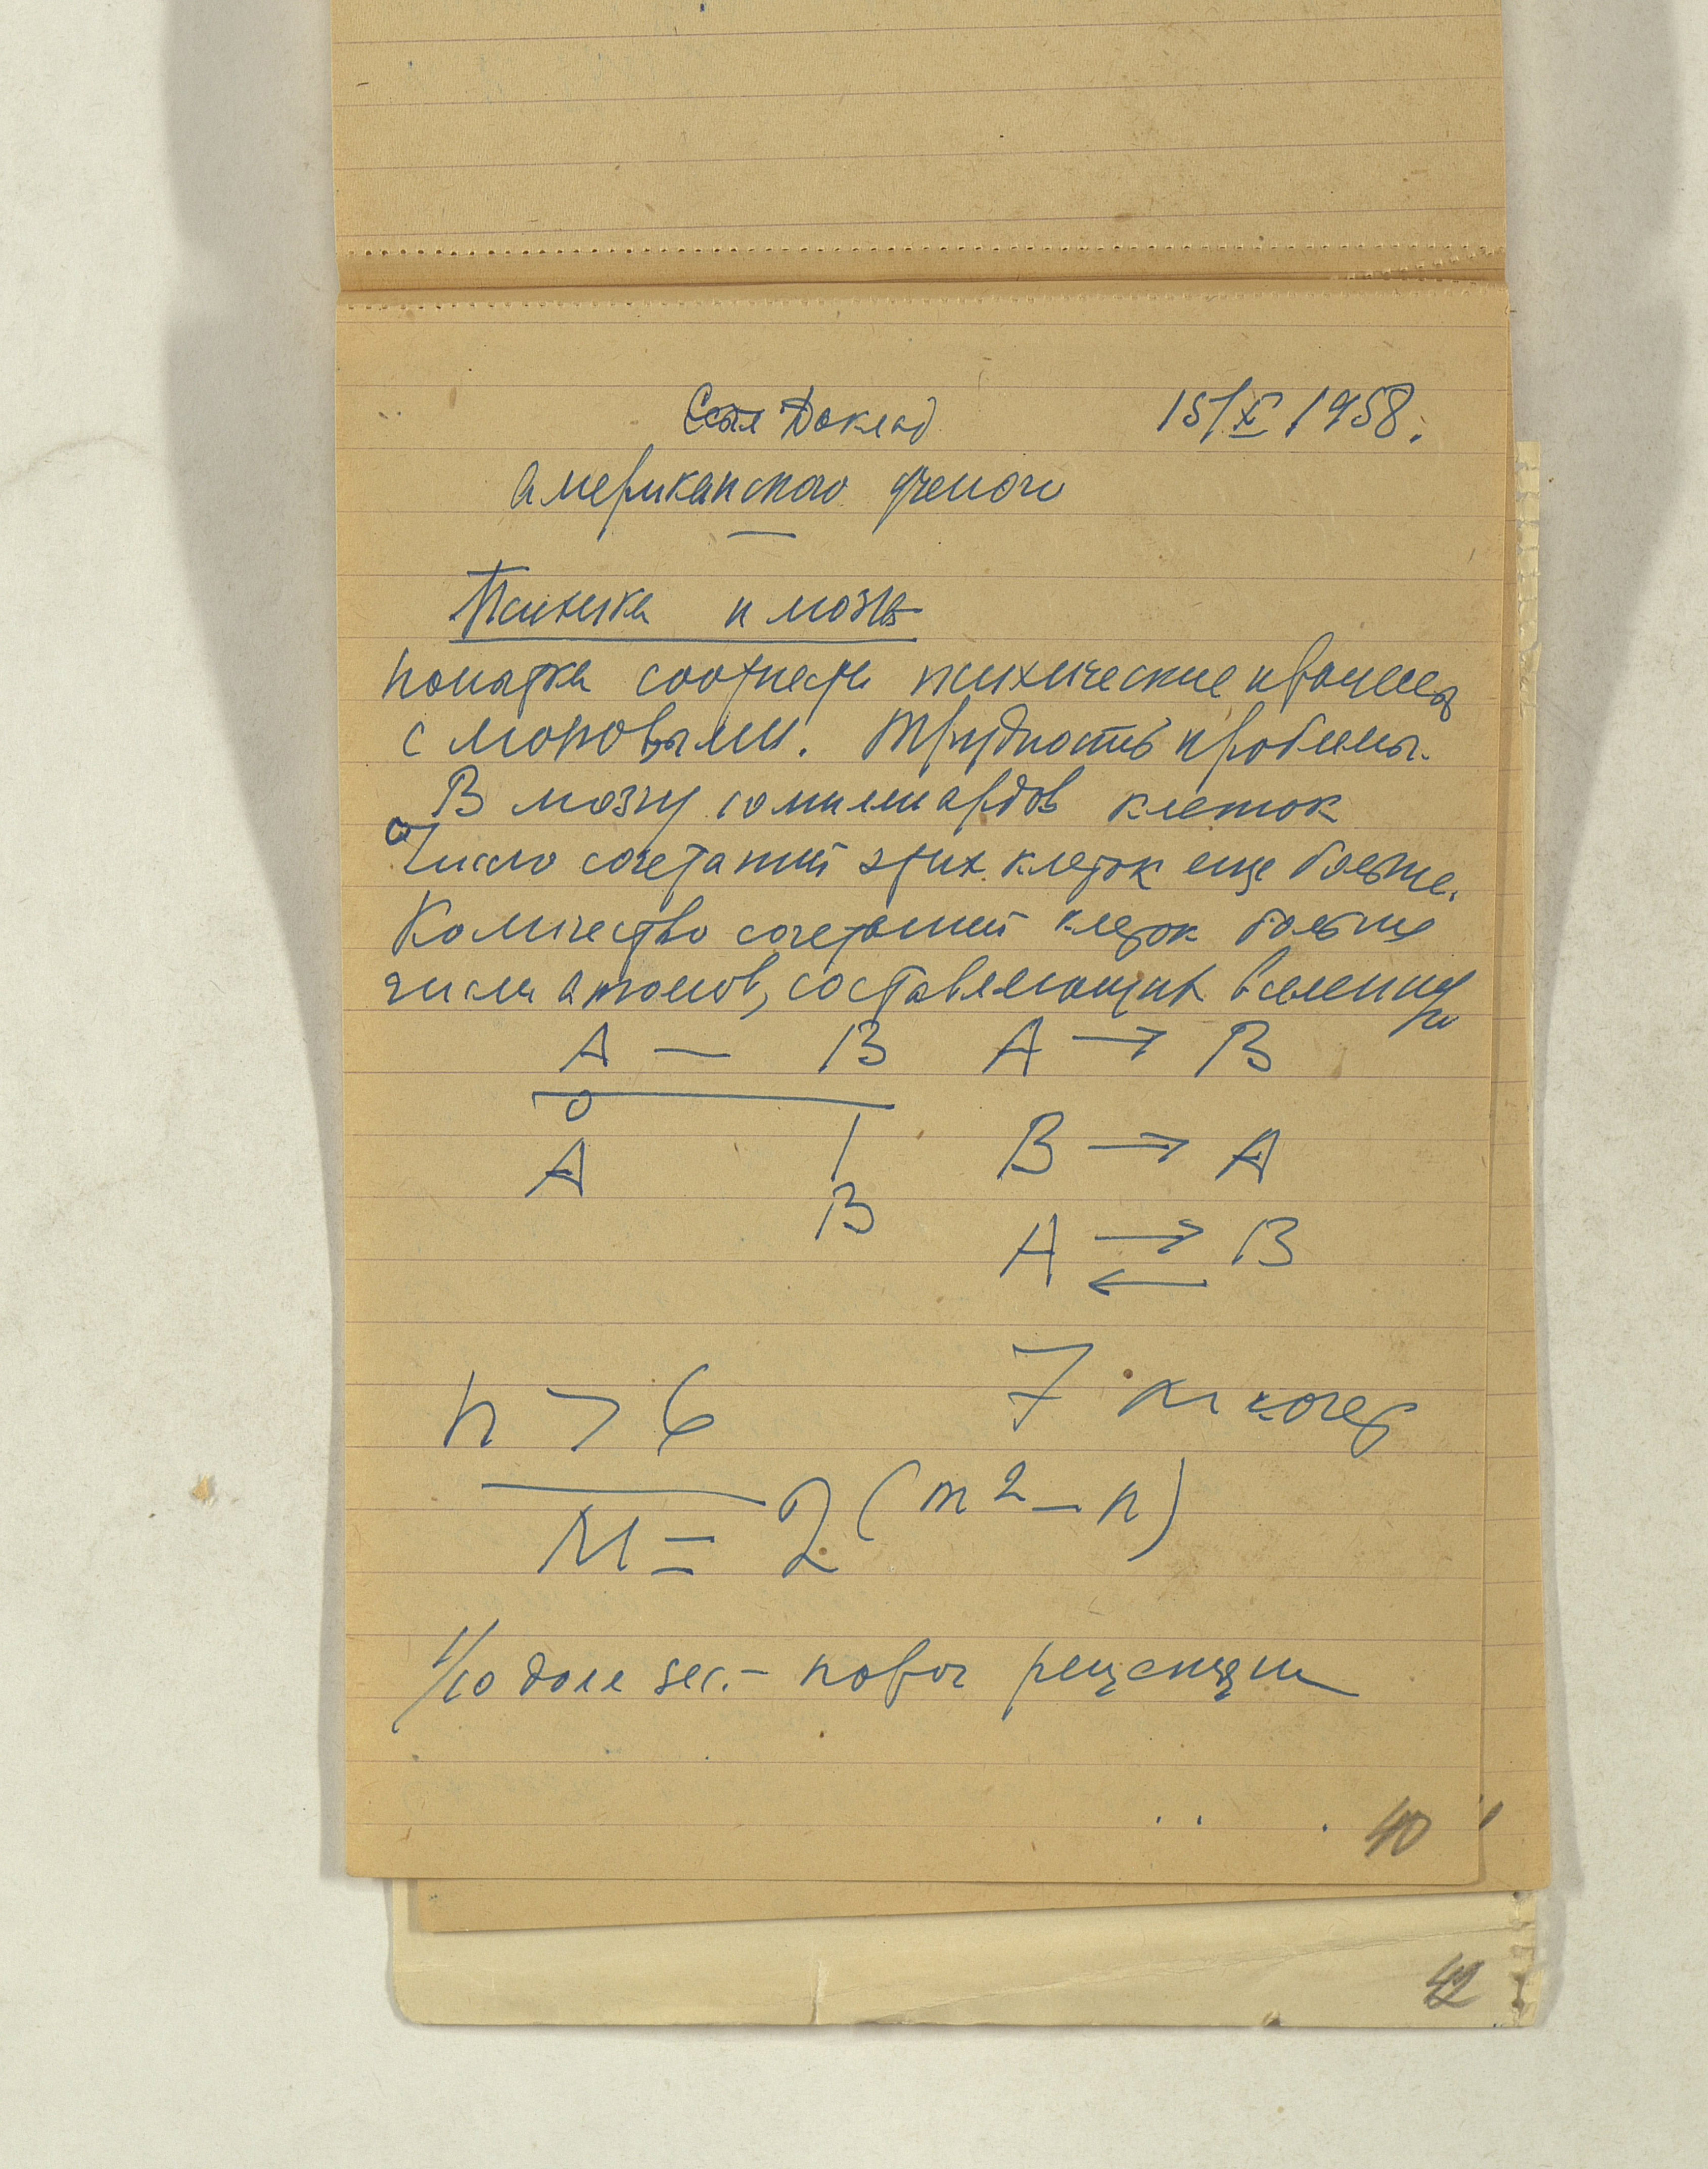 Доклад 15/X 1958.
американского ученого
Психика и мозг
попытка соотнести психические процессы
с мозговыми. Трудность проблемы.
В мозгу 10 миллиардов клеток
Число сочетаний этих клеток еще больше.
Количество сочетаний клеток больше
числа атомов, составляющих вселенную
A — B A → B
0
A 1 B → A
B
A ⇄ B
n > 6 7
M = 2(n² – n)
1/10 доли sec. –
40
42